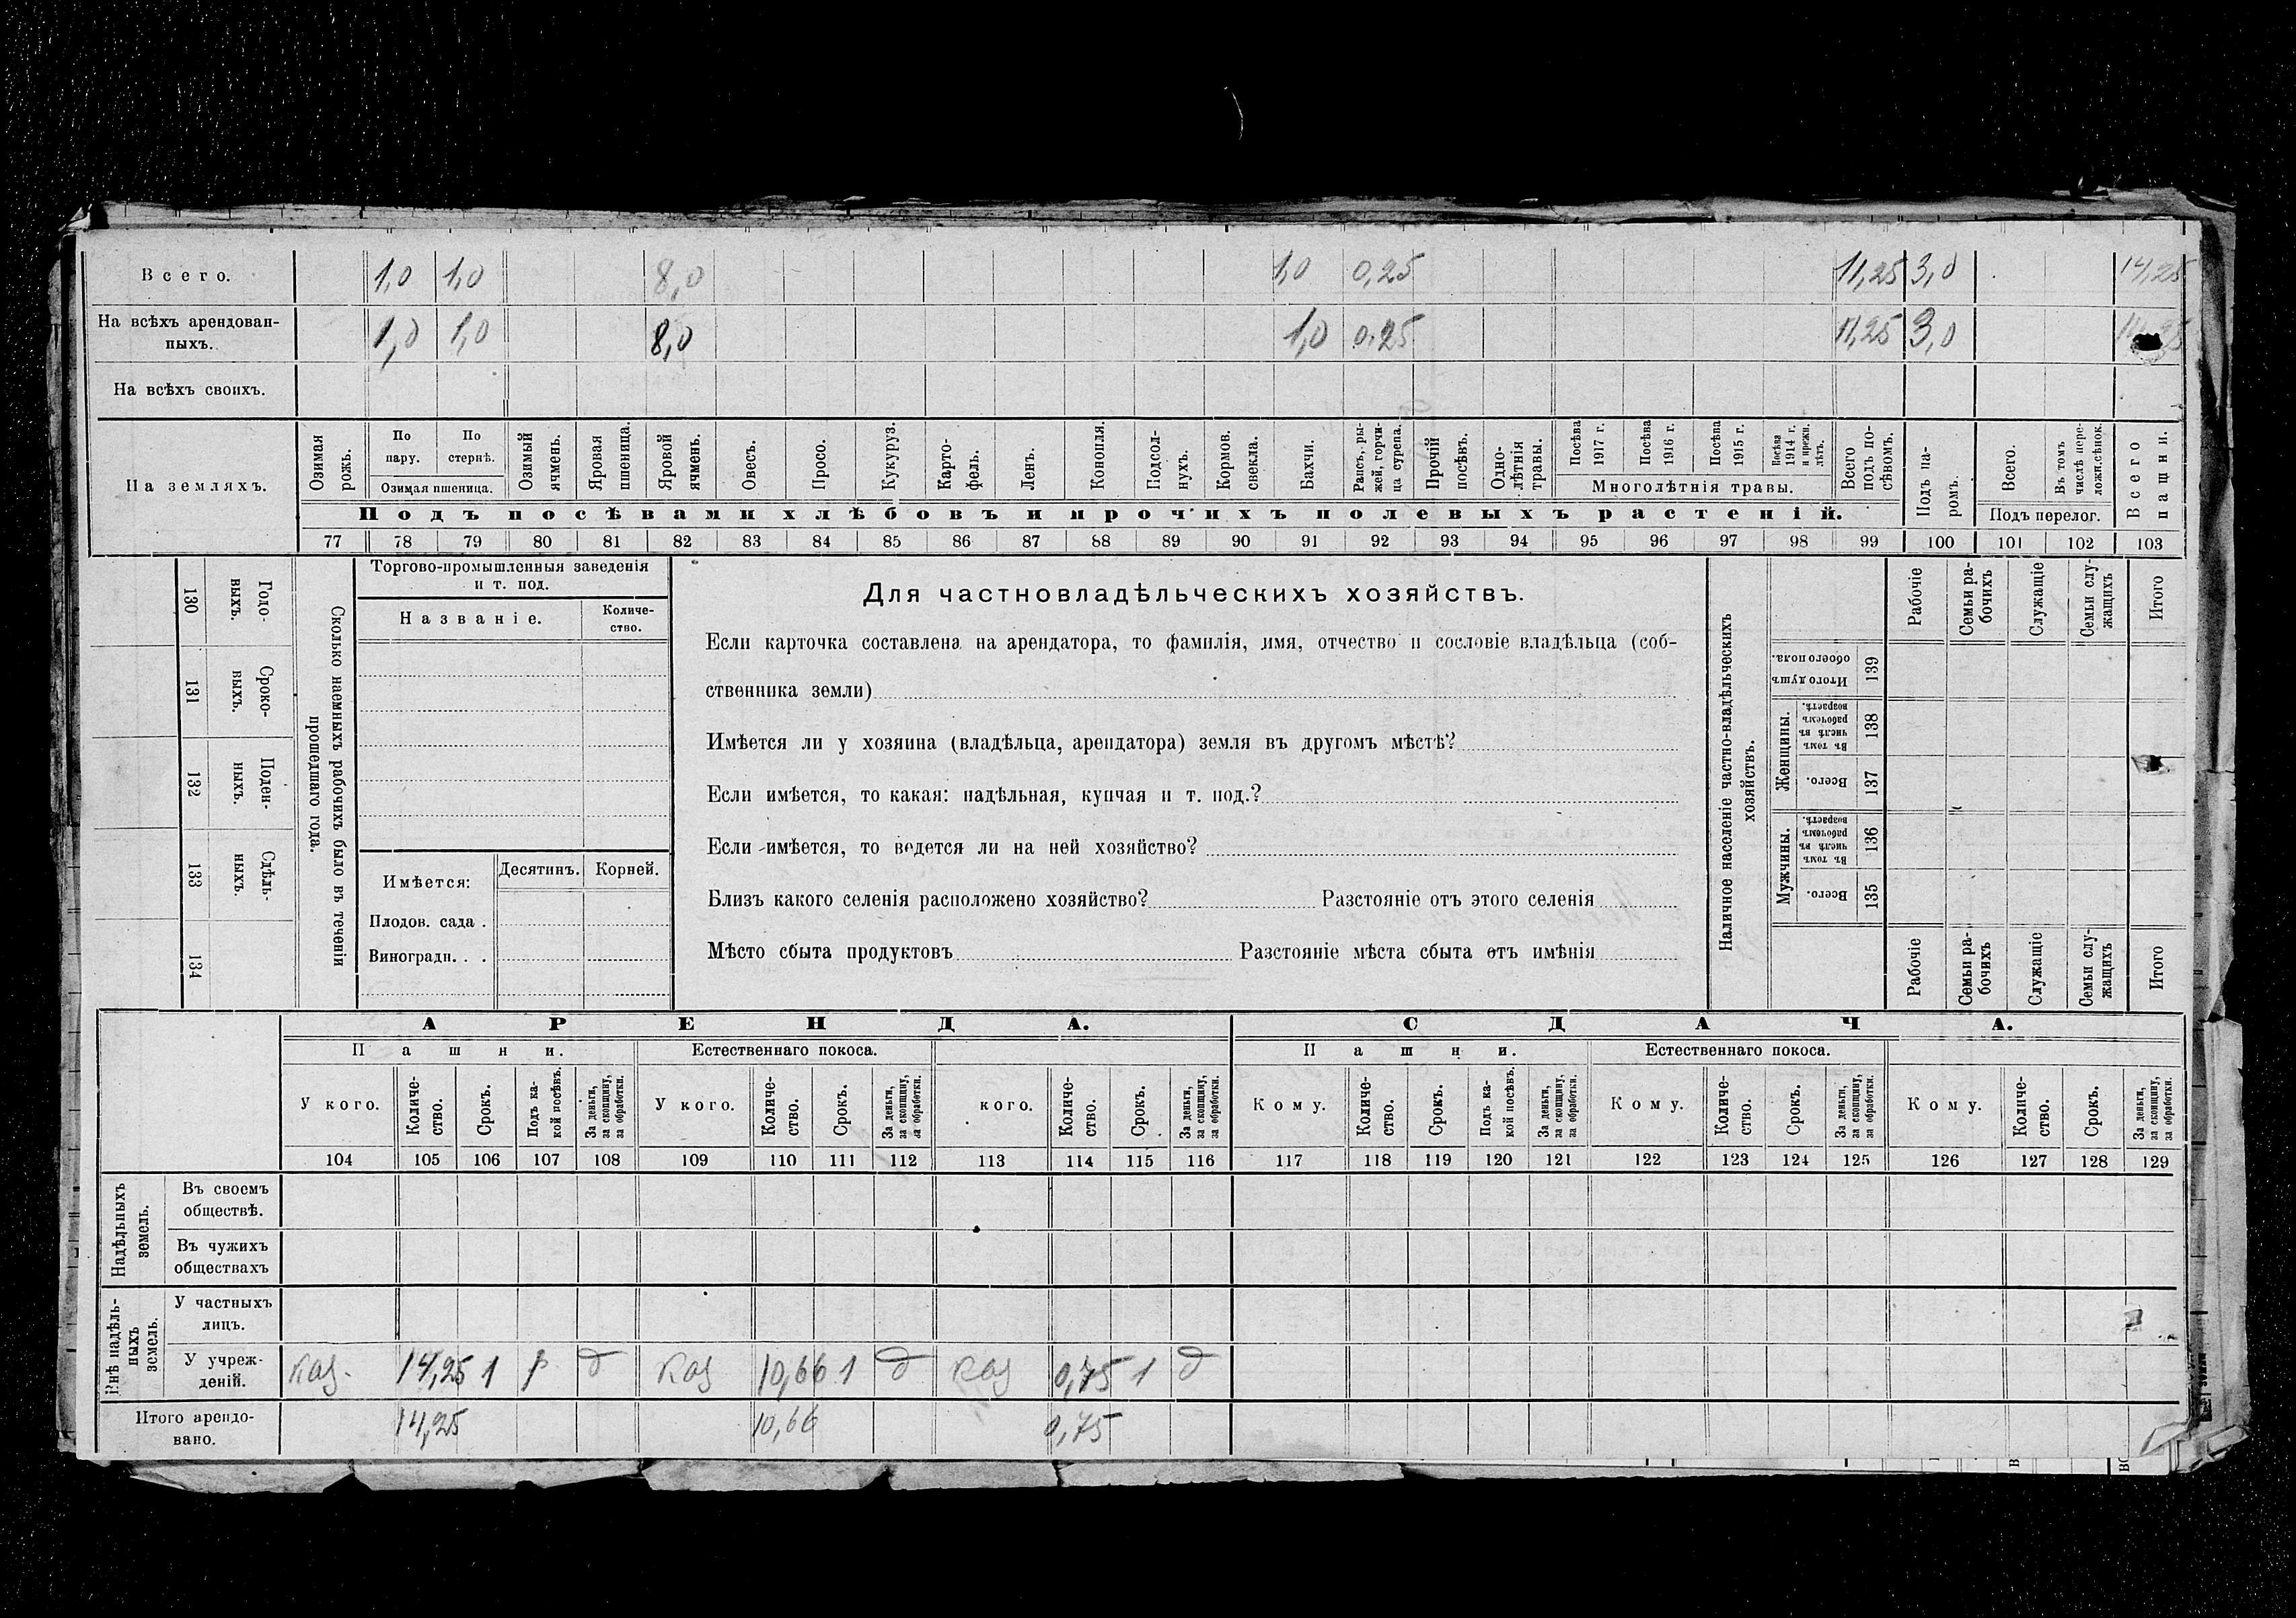 Всего. 1,0 1,0 8,0 1,0 0,25 11,25 3,0 14,25
На всѣхъ арендован-
ныхъ. 1,0 1,0 8,0 1,0 0,25 11,25 3,0
На всѣхъ своихъ.
На земляхъ.
Озимая рожь.
По пару.
По стернѣ.
Озимая пшеница.
Озимый ячмень.
Яровая пшеница.
Яровой ячмень.
Овесъ.
Просо.
Кукуруз.
Карто-
фель.
Ленъ.
Конопля.
Подсол-
нухъ.
Кормов. свекла.
Бахчи.
Рапсъ, ры-
жей, горчи-
ца сурепа.
Прочій посѣвъ.
Одно-
лѣтнія
травы.
Посѣва 1917 г.
Посѣва 1916 г.
Посѣва 1915 г.
Посѣва 1914 г. и прежн. лѣтъ.
Многолѣтнія травы.
Всего подъ по-
сѣвомъ.
Подъ па-
ромъ.
Всего.
Въ томъ числѣ пере-
ложн. сѣнок.
Подъ перелог.
Всего пашни.
Подъ посѣвами хлѣбовъ и прочихъ полевыхъ растеній.
77 78 79 80 81 82 83 84 85 86 87 88 89 90 91 92 93 94 95 96 97 98 99 100 101 102 103
130 Годо-
выхъ.
131 Сроко-
выхъ.
132 Поден-
ныхъ.
133 Сдѣль-
ныхъ.
134
Сколько наемныхъ рабочихъ было въ теченіи
прошедшаго года.
Торгово-промышленныя заведенія
и т. под.
Названіе. Количе-
ство.
Имѣется: Десятинъ. Корней.
Плодов. сада .
Виноградн. . .
Для частновладѣльческихъ хозяйствъ.
Если карточка составлена на арендатора, то фамилія, имя, отчество и сословіе владѣльца (соб-
ственника земли)
Имѣется ли у хозяина (владѣльца, арендатора) земля въ другомъ мѣстѣ?
Если имѣется, то какая: надѣльная, купчая и т. под.?
Если имѣется, то ведется ли на ней хозяйство?
Близъ какого селенія расположено хозяйство? Разстояніе отъ этого селенія
Мѣсто сбыта продуктовъ Разстояніе мѣста сбыта отъ имѣнія
Наличное населеніе частно-владѣльческихъ
хозяйствъ.
Рабочіе
Семьи ра-
бочихъ
Служащіе
Семьи слу-
жащихъ
Итого
Итого душъ обоего пола. 139
Женщины.
Въ томъ числѣ въ рабочемъ возрастѣ. 138
Всего. 137
Мужчины.
Въ томъ числѣ въ рабочемъ возрастѣ. 136
Всего. 135
Рабочіе
Семьи ра-
бочихъ
Служащіе
Семьи слу-
жащихъ
Итого
АРЕНДА. СДАЧА.
Пашни. Естественнаго покоса. Пашни. Естественнаго покоса.
У кого. Количе-
ство. Срокъ. Подъ ка-
кой посѣвъ. За деньги,
за скопщину,
за обработки.
У кого. Количе-
ство. Срокъ. За деньги,
за скопщину,
за обработки.
кого. Количе-
ство. Срокъ. За деньги,
за скопщину,
за обработки.
Кому. Количе-
ство. Срокъ. Подъ ка-
кой посѣвъ. За деньги,
за скопщину,
за обработки.
Кому. Количе-
ство. Срокъ. За деньги,
за скопщину,
за обработки.
Кому. Количе-
ство. Срокъ. За деньги,
за скопщину,
за обработки.
104 105 106 107 108 109 110 111 112 113 114 115 116 117 118 119 120 121 122 123 124 125 126 127 128 129
Надѣльныхъ
земель.
Въ своемъ
обществѣ.
Въ чужихъ
обществахъ
Внѣ надѣль-
ныхъ
земель.
У частныхъ
лицъ.
У учреж-
деній. каз. 14,25 1 р д каз 10,66 1 д каз 0,75 1 д
Итого арендо-
вано. 14,25 10,66 0,75